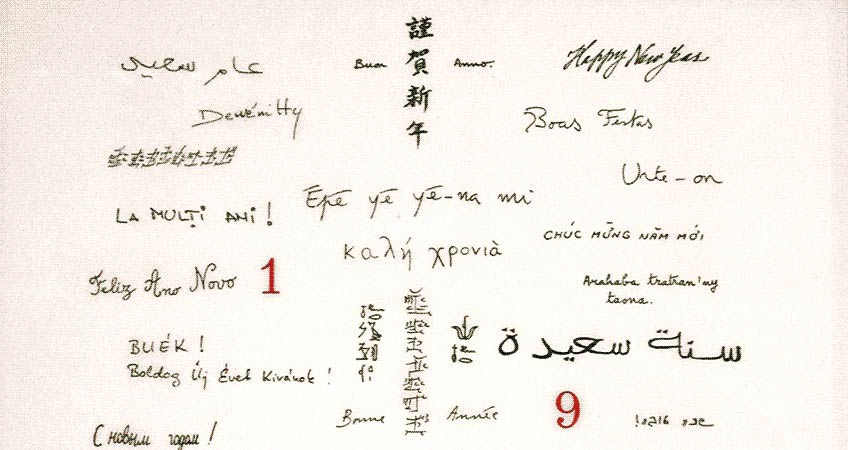 謹賀新年
عام سعيد
Buon Anno.
Happy New Year
Dewénitty
Boas Festas
Urte - on
LA MULȚI ANI !
Epe ye ye-na mi
CHÚC MỪNG NĂM MỚI
καλή χρονιὰ
Feliz Ano Novo
1
Arahaba tratran'ny
taona.
سنة سعيدة
BUÉK !
Boldog Új Évet Kivánok !
Bonne Année
9
שנה טובה!
С новым годом !